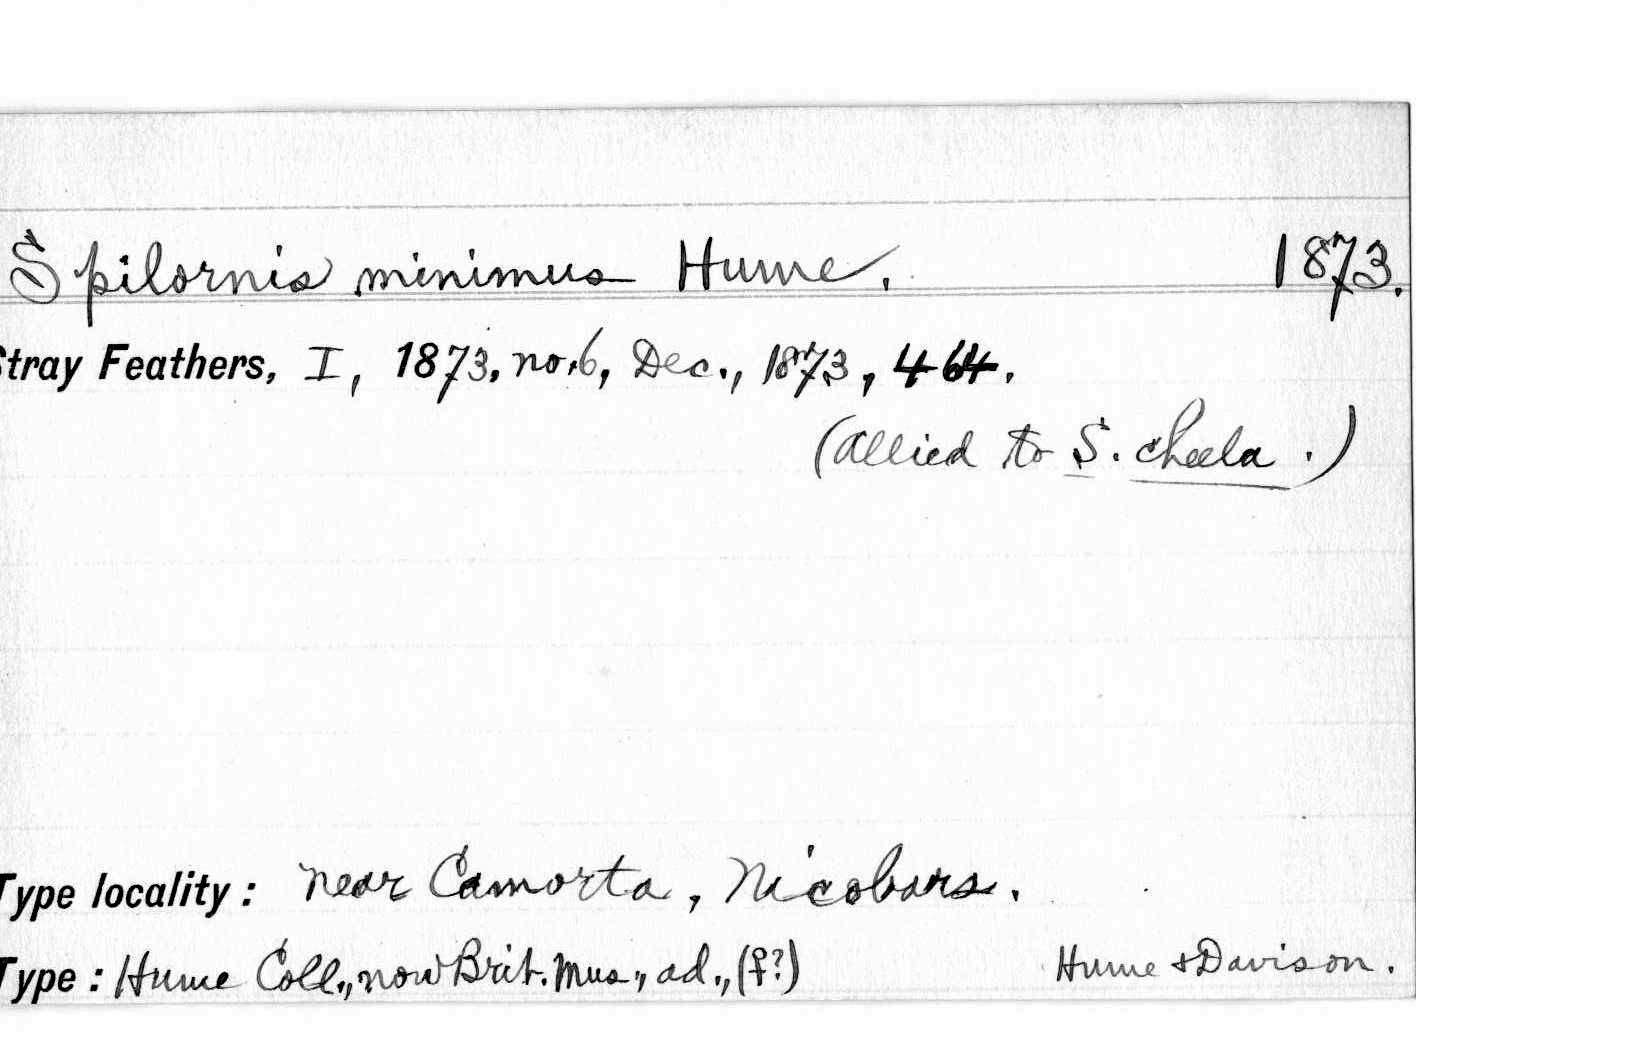 Spilornis minimus Hume. 1873.
Stray Feathers, I, 1873, no. 6, Dec., 1873, 464.
(allied to S. cheela.)
Type locality: near Camorta, Nicobars.
Type: Hume Coll., now Brit. Mus., ad., (♀?) Hume & Davison.